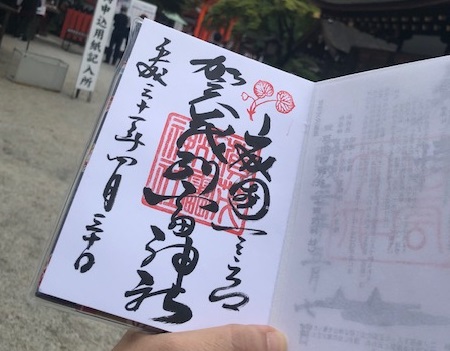 申込用紙記入所
山城国一之宮
賀茂別雷神社
平成三十一年四月三十日